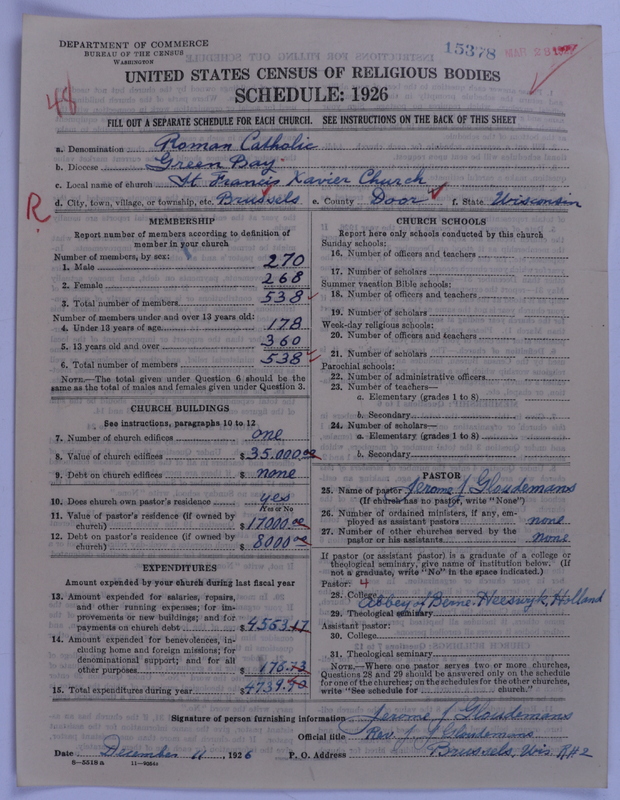 DEPARTMENT OF COMMERCE
BUREAU OF THE CENSUS
WASHINGTON
15378 MAR 28
UNITED STATES CENSUS OF RELIGIOUS BODIES
SCHEDULE: 1926
48
FILL OUT A SEPARATE SCHEDULE FOR EACH CHURCH. SEE INSTRUCTIONS ON THE BACK OF THIS SHEET
a. Denomination Roman Catholic
b. Diocese Green Bay.
c. Local name of church St Francis Xavier Church
R
d. City, town, village, or township, etc. Brussels e. County Door f. State Wisconsin
MEMBERSHIP
Report number of members according to definition of
member in your church
Number of members, by sex:
1. Male 270
2. Female 268
3. Total number of members 538
Number of members under and over 13 years old:
4. Under 13 years of age 178
5. 13 years old and over 360
6. Total number of members 538
NOTE.—The total given under Question 6 should be the
same as the total of males and females given under Question 3.
CHURCH BUILDINGS
See instructions, paragraphs 10 to 12
7. Number of church edifices one
8. Value of church edifices $35.000.00
9. Debt on church edifices $ none
10. Does church own pastor's residence yes
Yes or No
11. Value of pastor's residence (if owned by
church) $17000.00
12. Debt on pastor's residence (if owned by
church) $8000 00
EXPENDITURES
Amount expended by your church during last fiscal year
13. Amount expended for salaries, repairs,
and other running expenses; for im-
provements or new buildings; and for
payments on church debt $4563.17
14. Amount expended for benevolences, in-
cluding home and foreign missions; for
denominational support; and for all
other purposes $176.73
15. Total expenditures during year $4739.90
CHURCH SCHOOLS
Report here only schools conducted by this church
Sunday schools:
16. Number of officers and teachers
17. Number of scholars
Summer vacation Bible schools:
18. Number of officers and teachers
19. Number of scholars
Week-day religious schools:
20. Number of officers and teachers
21. Number of scholars
Parochial schools:
22. Number of administrative officers
23. Number of teachers—
a. Elementary (grades 1 to 8)
b. Secondary
24. Number of scholars—
a. Elementary (grades 1 to 8)
b. Secondary
PASTOR
25. Name of pastor Jerome J Gloudemans
(If church has no pastor, write "None")
26. Number of ordained ministers, if any, em-
ployed as assistant pastors none
27. Number of other churches served by the
pastor or his assistants none
If pastor (or assistant pastor) is a graduate of a college or
theological seminary, give name of institution below. (If
not a graduate, write "No" in the space indicated.)
Pastor: 4
28. College
Abbey of Berne. Heeswyk, Holland
29. Theological seminary
Assistant pastor:
30. College
31. Theological seminary
NOTE.—Where one pastor serves two or more churches,
Questions 28 and 29 should be answered only on the schedule
for one of the churches; on the schedules for the other churches,
write "See schedule for church."
Signature of person furnishing information Jerome J Gloudemans
Official title Rev. J. J Gloudemans
Date December 11, 1926 P. O. Address Brussels, Wis. RR2
8—5518a 11—9064a